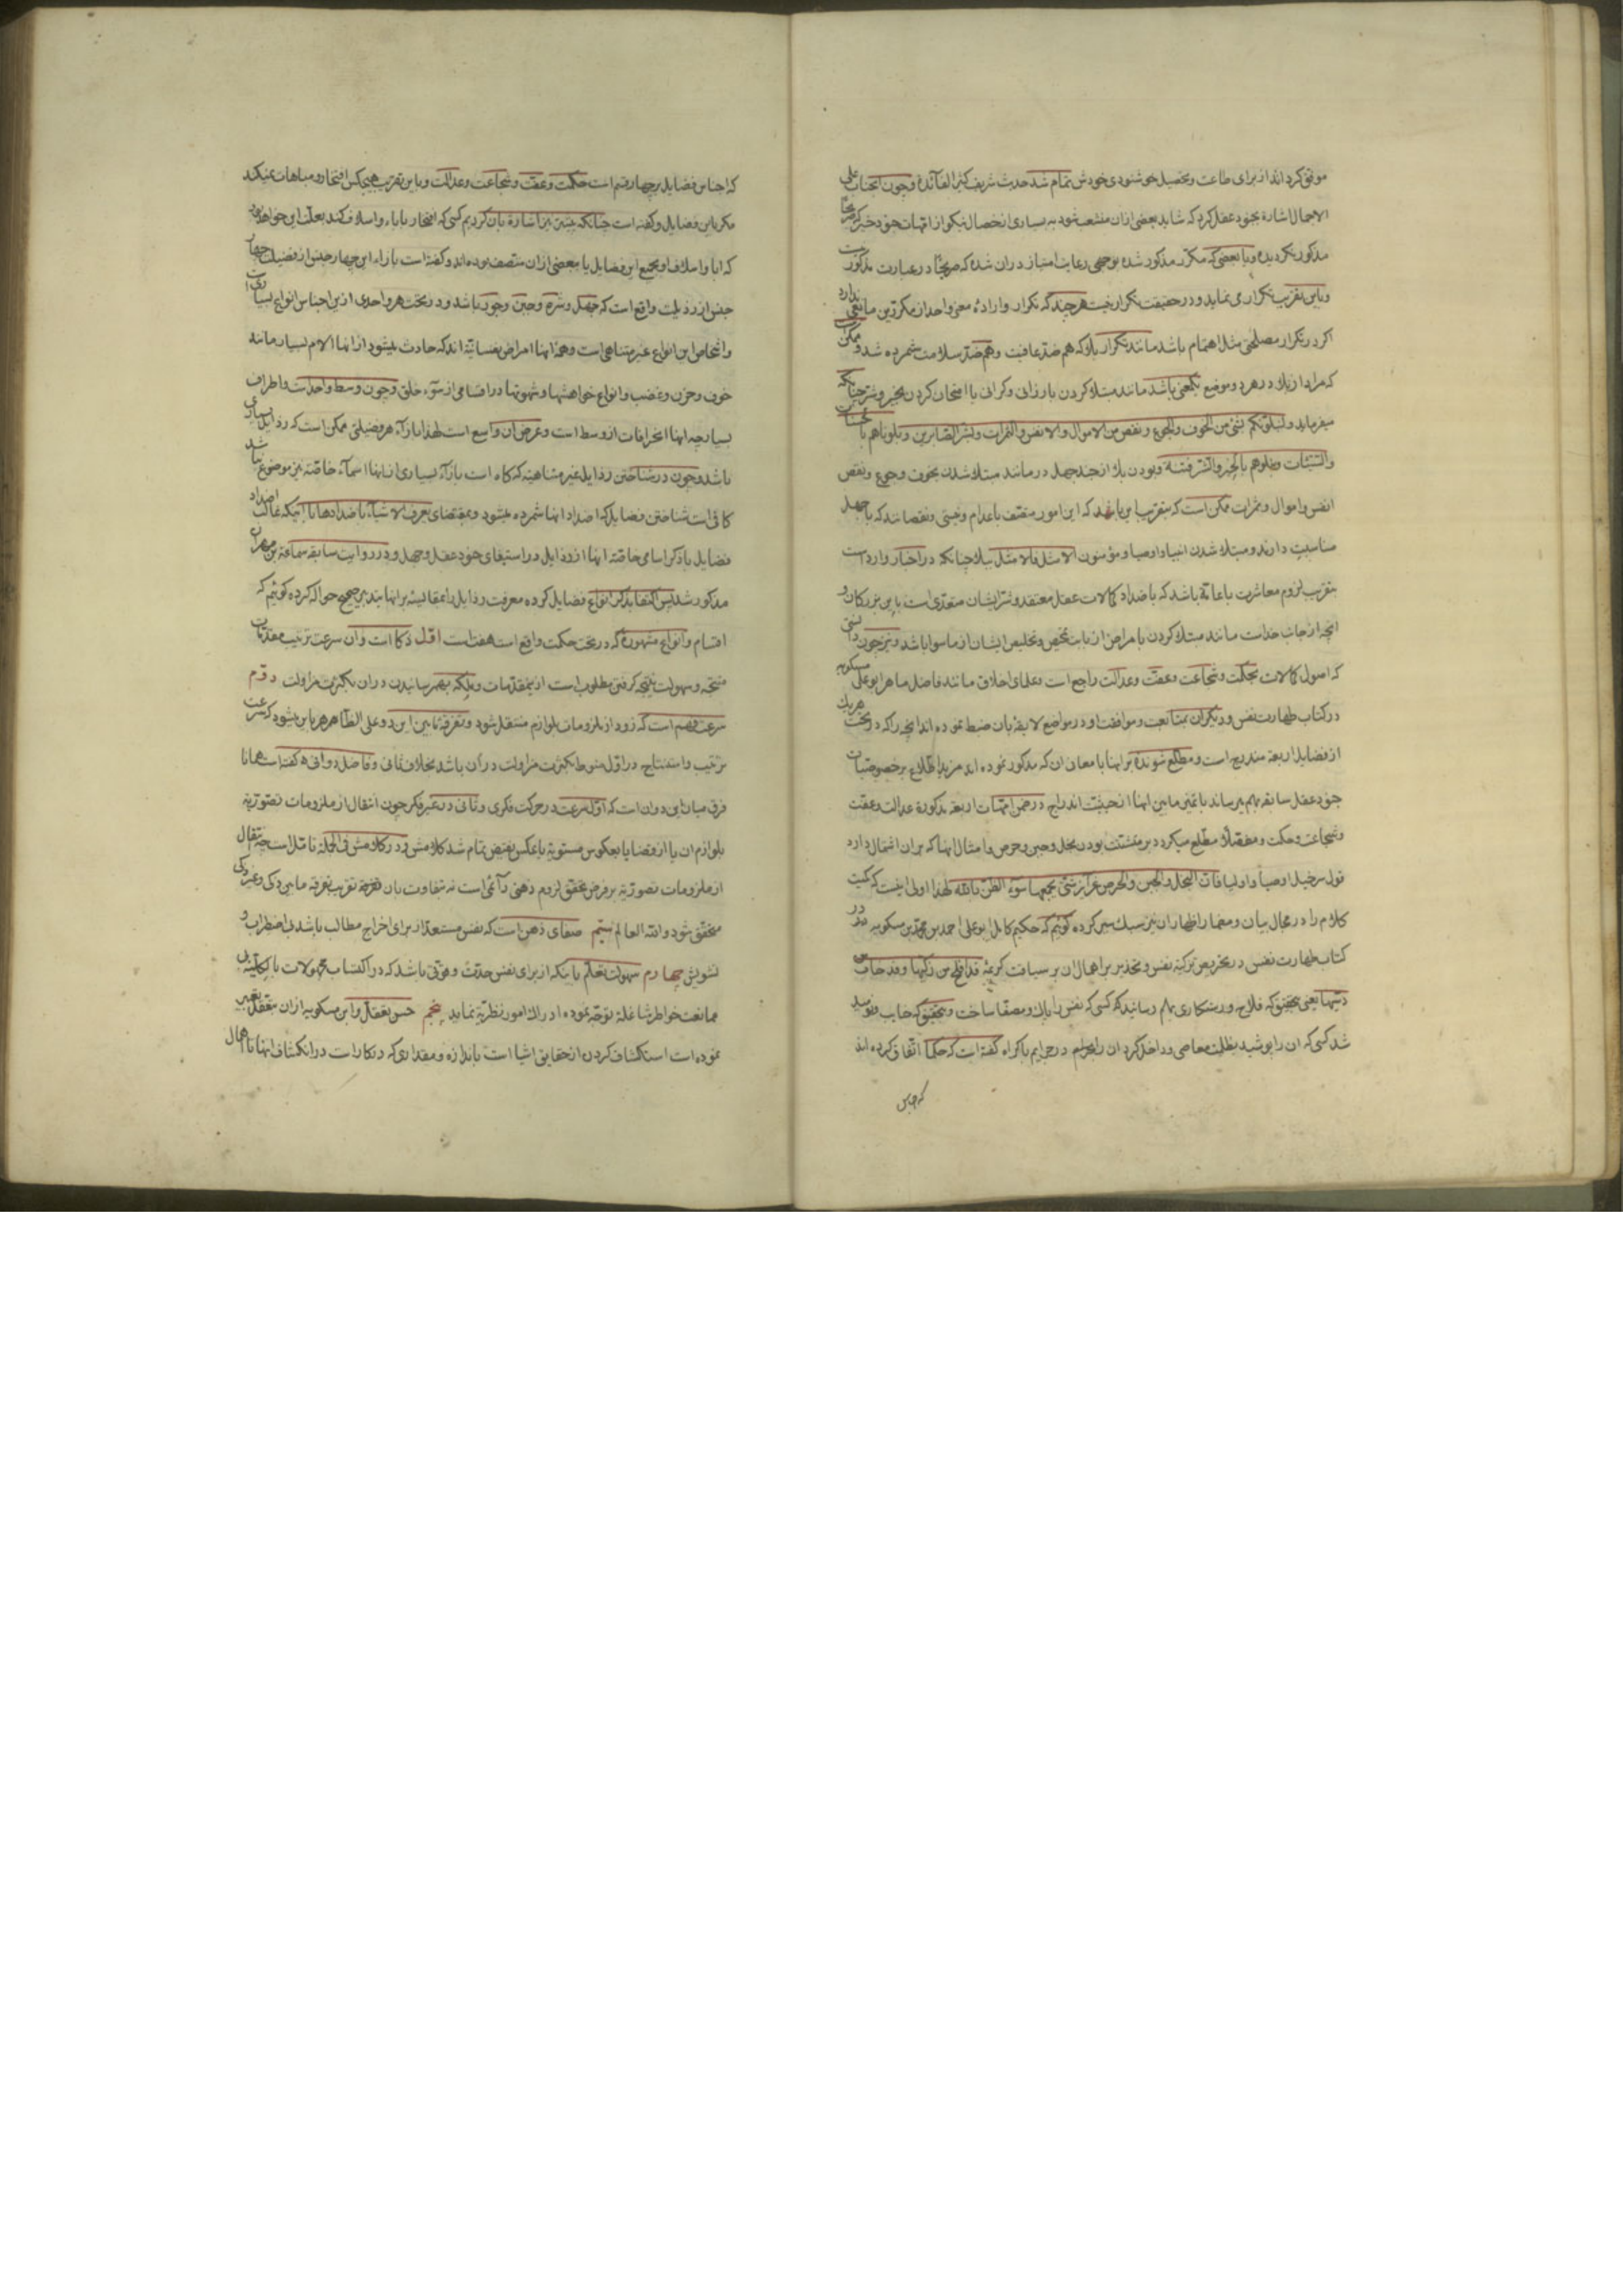 موفق کرد انداز برای طاعت و تحصیل خوشنودی خودش تمام شد حدیث شریف کثیر الفائدة و چون آنجناب علی
الاجمال اشاره بجنود عقل کرد که شاید بعضی ازان منشعب شود به بسیاری از خصال نیکو از امهات خود خبر که صریحا
مذکور نگردیده و با بعضی که مکرر مذکور شده بوجهی رعایت امتیاز دران شده که صریحا در عبارت مذکور نیست
و باین تقریب تکرار می نماید و در حقیقت تکرار نیست هر چند که تکرار و ارادهٔ معنی واحد از مکررین مانعی ندارد
اگر در تکرار مصلحتی مثل اهتمام باشد مانند تکرار بلا که هم ضد عافیت و هم ضد سلامت شمرده شد و ممکن است
که مراد از بلا در هر دو موضع بیک معنی باشد مانند مبتلا کردن بارزانی و گرانی یا امتحان کردن بخیر و شر چنانکه
میفرماید ولنبلونکم بشئ من الخوف والجوع و نقص من الاموال والانفس والثمرات وبشر الصابرین و بلوناهم بالحسنات
والسیئات ونبلوهم بالخیر والشر فتنة و بودن بلا از جند جهل در مانند مبتلا شدن بخوف و جوع و نقص
انفس و اموال و ثمرات ممکن است که بتقریب این باشد که این امور متصف باعدام و نیستی و نقصانند که با جهل
مناسبت دارند و مبتلا شدن انبیا و اوصیا و مؤمنون الامثل فالامثل ببلا چنانکه در اخبار وارد است
بتقریب لزوم معاشرت با عامه باشد که باضداد کمالات عقل معتقد و شر ایشان متعدی است باین بزرگان و
آنچه از جانب خداست مانند مبتلا کردن بامراض از باب تمحیص و تخلیص ایشان از ما سوا باشد و نیز چون دانستی
که اصول کمالات بحکمت و شجاعت و عفت و عدالت راجع است و علمای اخلاق مانند فاضل ماهر ابو علی مسکویه
در کتاب طهارت نفس و دیگران بمتابعت و موافقت او در مواضع لایقه بان ضبط نموده اند آنچه را که در تحت هر یک
از فضایل اربعه مندرج است و مطلع شونده بر اینها با معانی ان که مذکور نموده اند مزید اطلاع بر خصوصیات
جنود عقل سابقه بهم میرساند با تمیز مابین اینها از حیثیت اندراج در ضمن امهات اربعه مذکورة عدالت و عفت
و شجاعت و حکمت و مفصلا مطلع میگردد بر متشتت بودن بخل و جبن و حرص و امثال اینها که بران اشتمال دارد
قول سرخیل اوصیا و اولیا فان البخل والجبن والحرص غرائز شتی یجمعها سوء الظن بالله لهذا اولی اینست که کمیت
کلام را در مجال بیان و مضمار اظهار ان نیز سبک سیر کرده گوئیم که حکیم کامل ابو علی احمد بن محمد بن مسکویه در
کتاب طهارت نفس در تحریص تزکیهٔ نفس و تحذیر بر اهمال ان بر سیاقت کریمهٔ قد افلح من زکیها وقد خاب من
دسّیها یعنی بتحقیق که فلاح و رستکاری بهم رسانید کسی که نفس را پاک و مصفا ساخت و بتحقیق که خایب و نومید
شد کسی که ان را پوشید بظلمت معاصی و داخل کرد ان را بحرام در جرایم باکراه گفته است که حکما اتفاق کرده اند
که اجناس
که اجناس فضایل چهار قسم است حکمت و عفت و شجاعت و عدالت و باین تقریب هیچکس افتخار و مباهات نمیکند
مگر باین فضایل و گفته است چنانکه پیشتر نیز اشاره بان کردیم کسی که افتخار باباء و اسلاف کند بعلت این خواهد بود
که ابا و اسلاف او بجمیع این فضایل یا ببعضی ازان متصف بوده اند و گفته است بازاء این چهار جنس از فضیلت چهار
جنس از رذیلت واقع است که جهل و شره و جبن و جور باشد و در تحت هر واحدی از این اجناس انواع بسیار است
و اشخاص این انواع غیر متناهی است و همهٔ اینها امراض نفسانیة اند که حادث میشود از انها الام بسیار مانند
خوف و حزن و غضب و انواع خواهشها و شهوتها در اقسامی از سوء خلق و چون وسط واحد است و اطراف
بسیار چه اینها انحرافات از وسط است و عرض ان واسع است لهذا بازاء هر فضیلتی ممکن است که رذایل بسیاری
باشد و چون در شناختن رذایل غیر متناهیة که گاه است بازاء بسیاری از اینها اسماء خاصه نیز موضوع نباشد
کافی است شناختن فضایل که اضداد اینها شمرده میشود و بمقتضای تعرف الاشیاء باضدادها با آنکه غالب اضداد
فضایل با ذکر اسامی خاصهٔ اینها از رذایل در استیفای جنود عقل و جهل و در روایت سابقه سماعة بن مهران
مذکور شد پس اکتفا بذکر انواع فضایل کرده معرفت رذایل را بمقایسه بر اینها بتدبر صحیح حواله کرده گوئیم که
اقسام و انواع مشهورهٔ که در تحت حکمت واقع است هفت است اول ذکا است و ان سرعت ترتیب مقدمات
منتجه و سهولت نتیجه گرفتن مطلوب است از مقدمات و ملکه بهم رسانیدن دران بکثرت مزاولت دوم
سرعت فهم است که زود از ملزومات بلوازم منتقل شود و تفرقهٔ مابین این دو علی الظاهر باین میشود که سرعت
ترتیب و استنتاج در اول منوط بکثرت مزاولت در ان باشد بخلاف ثانی و فاضل دوانی گفته است همانا
فرق میان این دو ان است که اول سرعت در حرکت فکری و ثانی در غیر فکر چون انتقال از ملزومات تصوریه
بلوازم ان یا از قضایا بعکوس مستویه یا عکس نقیض تمام شد کلامش و در کلامش فی الجمله تاملی است چه انتقال
از ملزومات تصوریه بر فرض تحقق لزوم ذهنی دائمی است نه بتفاوت بان تقریب تفرقه مابین ذکی و غیر ذکی
متحقق شود والله العالم سیّم صفای ذهن است که نفس مستعد از برای اخراج مطالب باشد بی اضطراب و
تشویش چهارم سهولت تعلم باینکه از برای نفس حدت و قوتی باشد که در اکتساب مجهولات بالکلیة بی
ممانعت خواطر شاغله توجه نموده ادراک امور نظریه نماید پنجم حسن تعقل و ابن مسکویه ازان بتعقل تعبیر
نموده است استکشاف کردن از حقایق اشیا است باندازه و مقداری که در کار است در انکشاف اینها نا اهمال